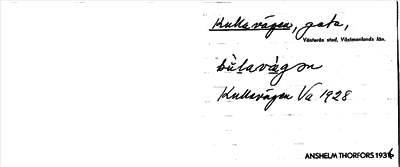 Kullavägen, gata,
Västerås stad, Västmanlands län.
Kullavägen Va 1928
ANSHELM THORFORS 1936